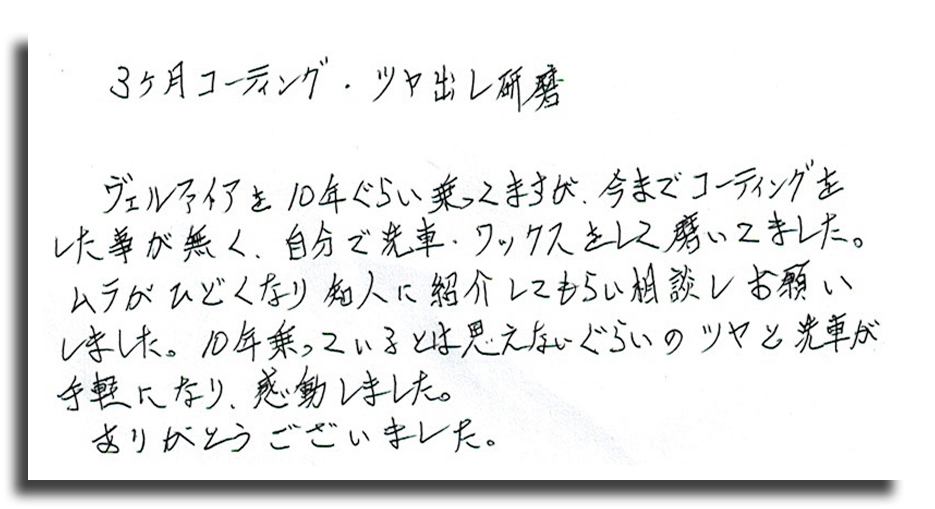 3ヶ月コーティング・ツヤ出し研磨
ヴェルファイアを10年ぐらい乗ってますが、今までコーティングを
した事が無く、自分で洗車・ワックスをして磨いてました。
ムラがひどくなり知人に紹介してもらい相談しお願い
しました。10年乗っているとは思えないぐらいのツヤと洗車が
手軽になり、感動しました。
ありがとうございました。